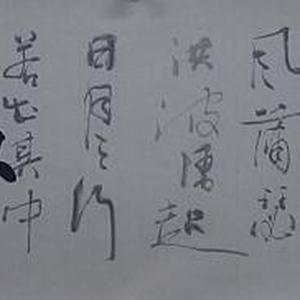 風蕭瑟
洪波湧起
日月之行
若出其中